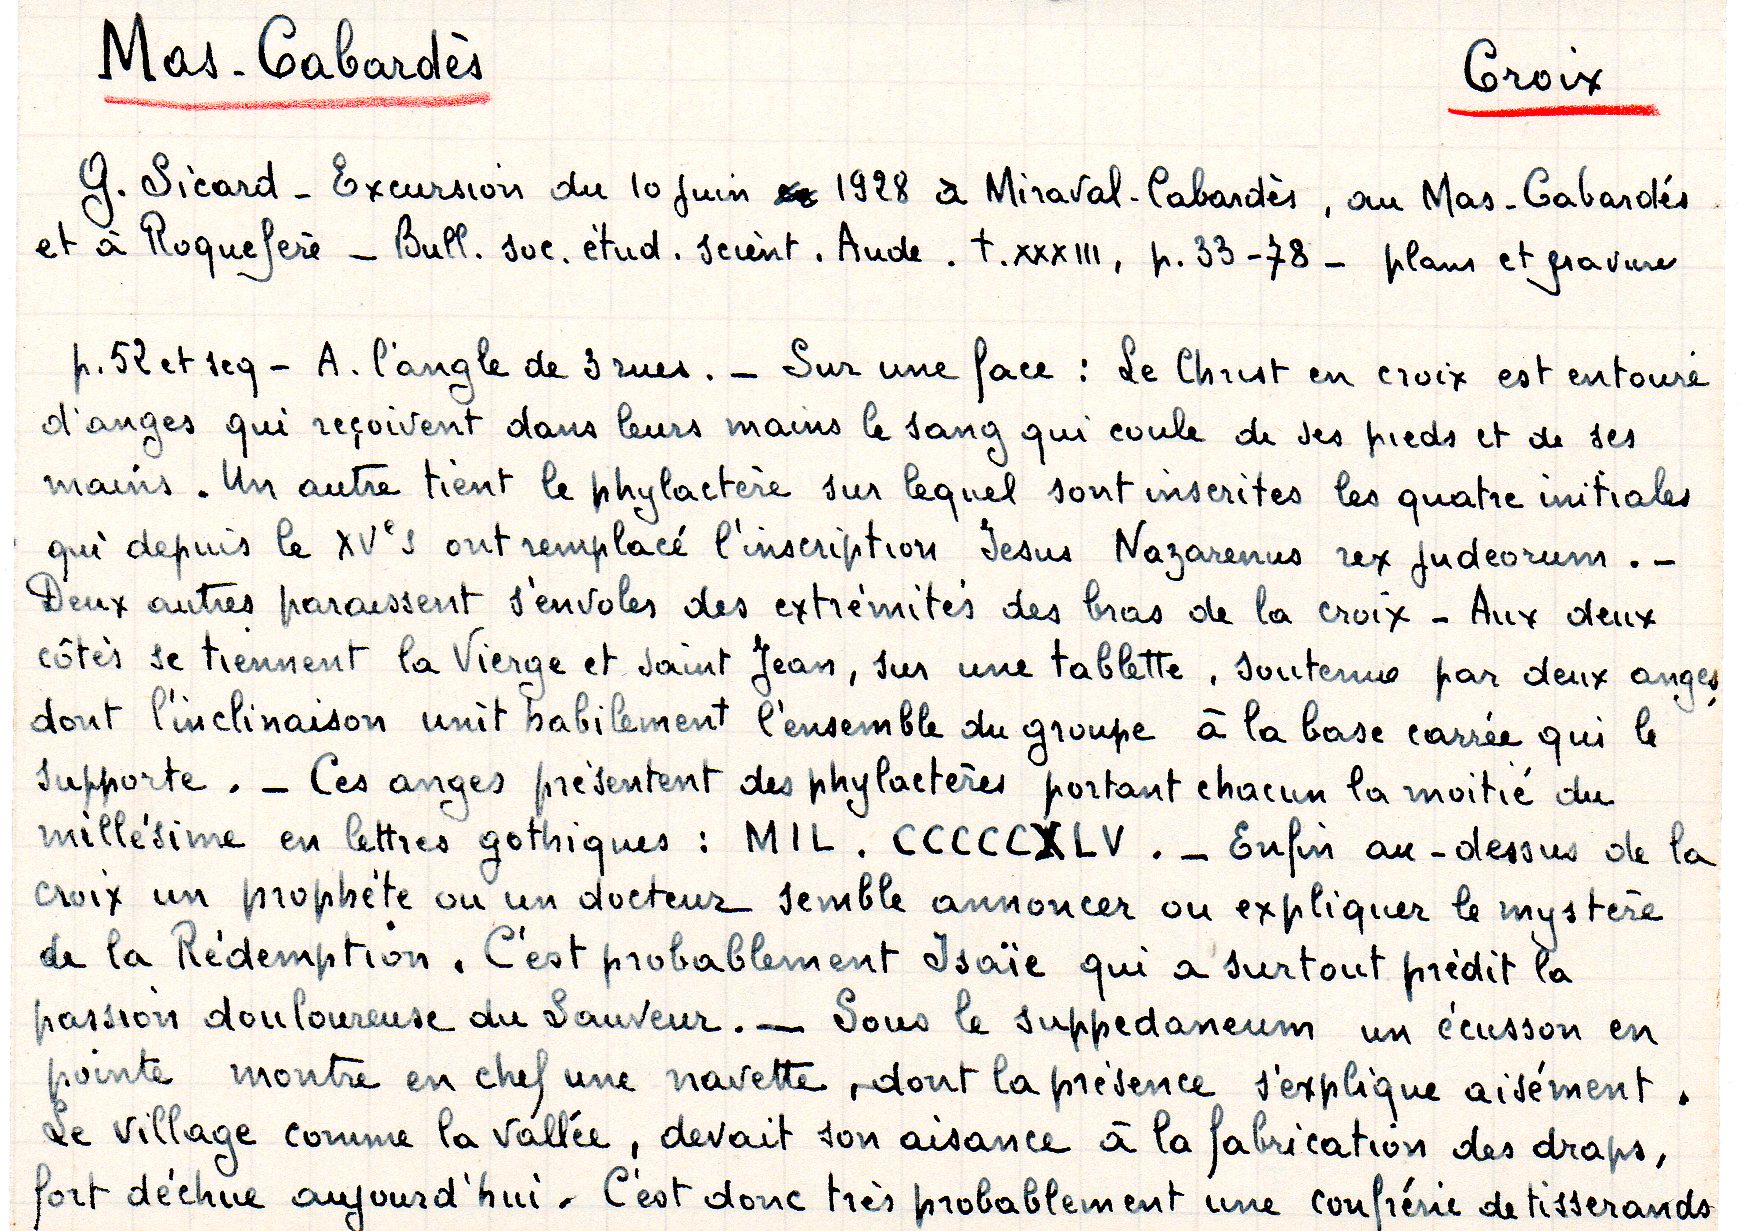 Mas-Cabardès
Croix
G. Sicard - Excursion du 10 juin 1928 à Miraval-Cabardès, au Mas-Cabardés
et à Roquefère - Bull. soc. étud. scient. Aude. t. XXXIII, p. 33-78 - plans et gravures
p. 52 et seq - A. l'angle de 3 rues. - Sur une face : Le Christ en croix est entouré
d'anges qui reçoivent dans leurs mains le sang qui coule de ses pieds et de ses
mains. Un autre tient le phylactère sur lequel sont inscrites les quatre initiales
qui depuis le XVe s ont remplacé l'inscription Jesus Nazarenus rex judeorum. -
Deux autres paraissent s'envoler des extrémités des bras de la croix - Aux deux
côtés se tiennent la Vierge et saint Jean, sur une tablette, soutenue par deux anges,
dont l'inclinaison unit habilement l'ensemble du groupe à la base carrée qui le
supporte. - Ces anges présentent des phylactères portant chacun la moitié du
millésime en lettres gothiques : MIL. CCCCCXLV. - Enfin au-dessus de la
croix un prophéte ou un docteur semble annoncer ou expliquer le mystère
de la Rédemption. C'est probablement Isaïe qui a surtout prédit la
passion douloureuse du Sauveur. - Sous le suppedaneum un écusson en
pointe montre en chef une navette, dont la présence s'explique aisément.
Le village comme la vallée, devait son aisance à la fabrication des draps,
fort déchue aujourd'hui. C'est donc très probablement une confrérie de tisserands